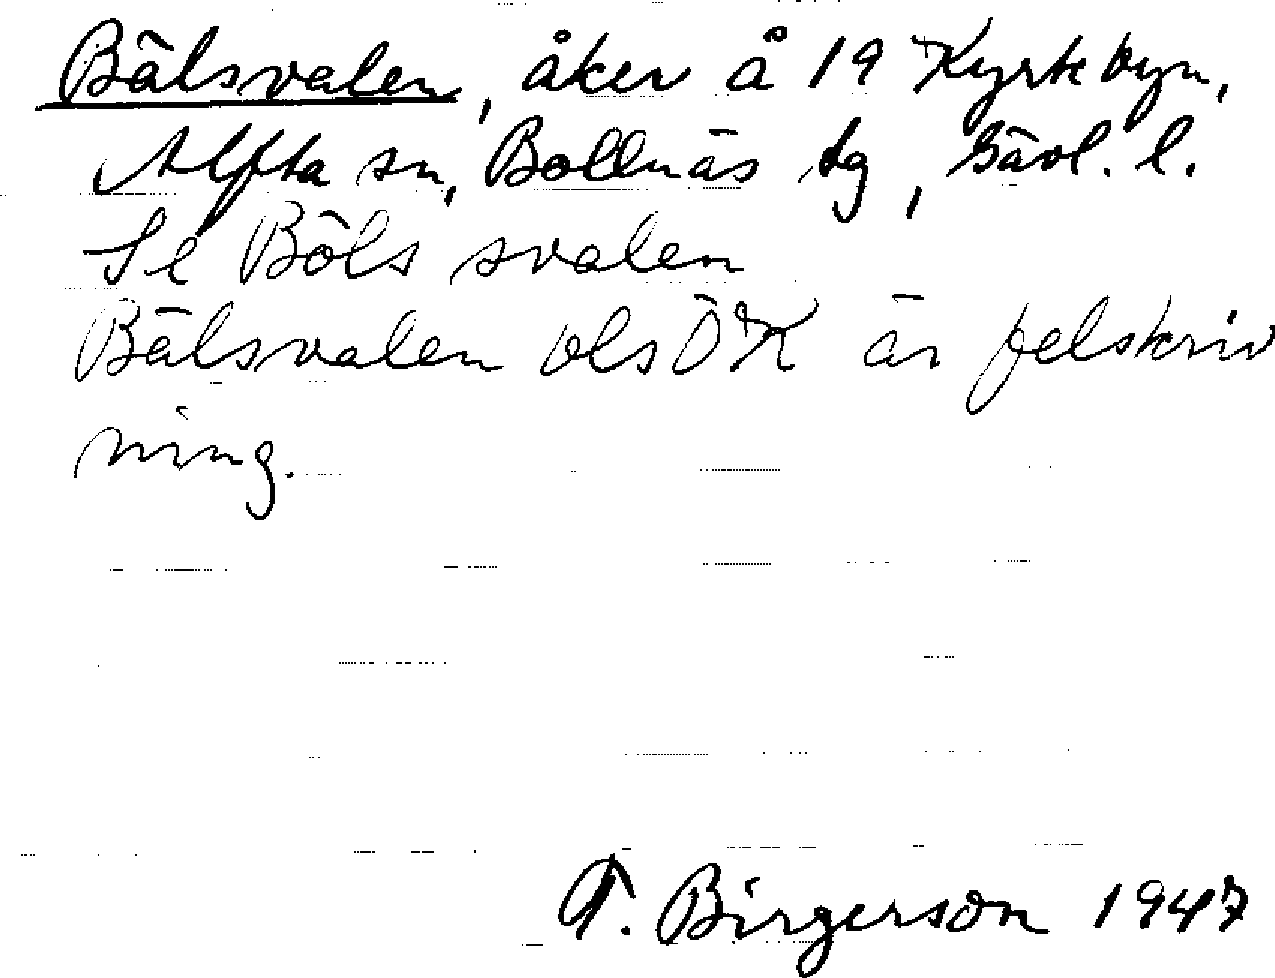 Bälsvalen, åker å 19 Kyrkbyn,
Alfta sn, Bollnäs tg, Gävl. l.
Se Böls svalen
Bälsvalen ÖK är felskriv
ning.
T. Birgerson 1947